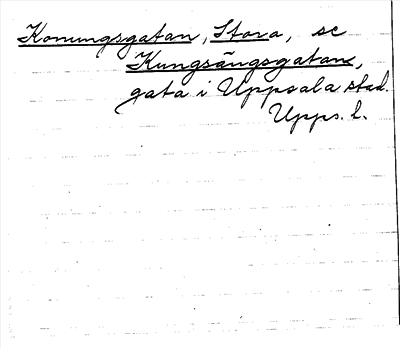 Konungsgatan, Stora, se
Kungsängsgatan,
gata i Uppsala stad.
Upps. l.